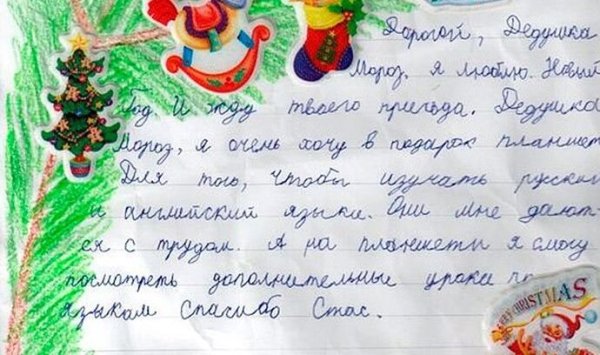 Дорогой, Дедушка
Мороз, я люблю. Новый
Год И жду твоего приезда. Дедушка
Мороз, я очень хочу в подарок планшет
Для того, чтобы изучать русский
и английский языки. Они мне дают-
ся с трудом. А на планшеты я смогу
посмотреть дополнительные уроки по
языкам Спасибо Стас.
MERRY CHRISTMAS